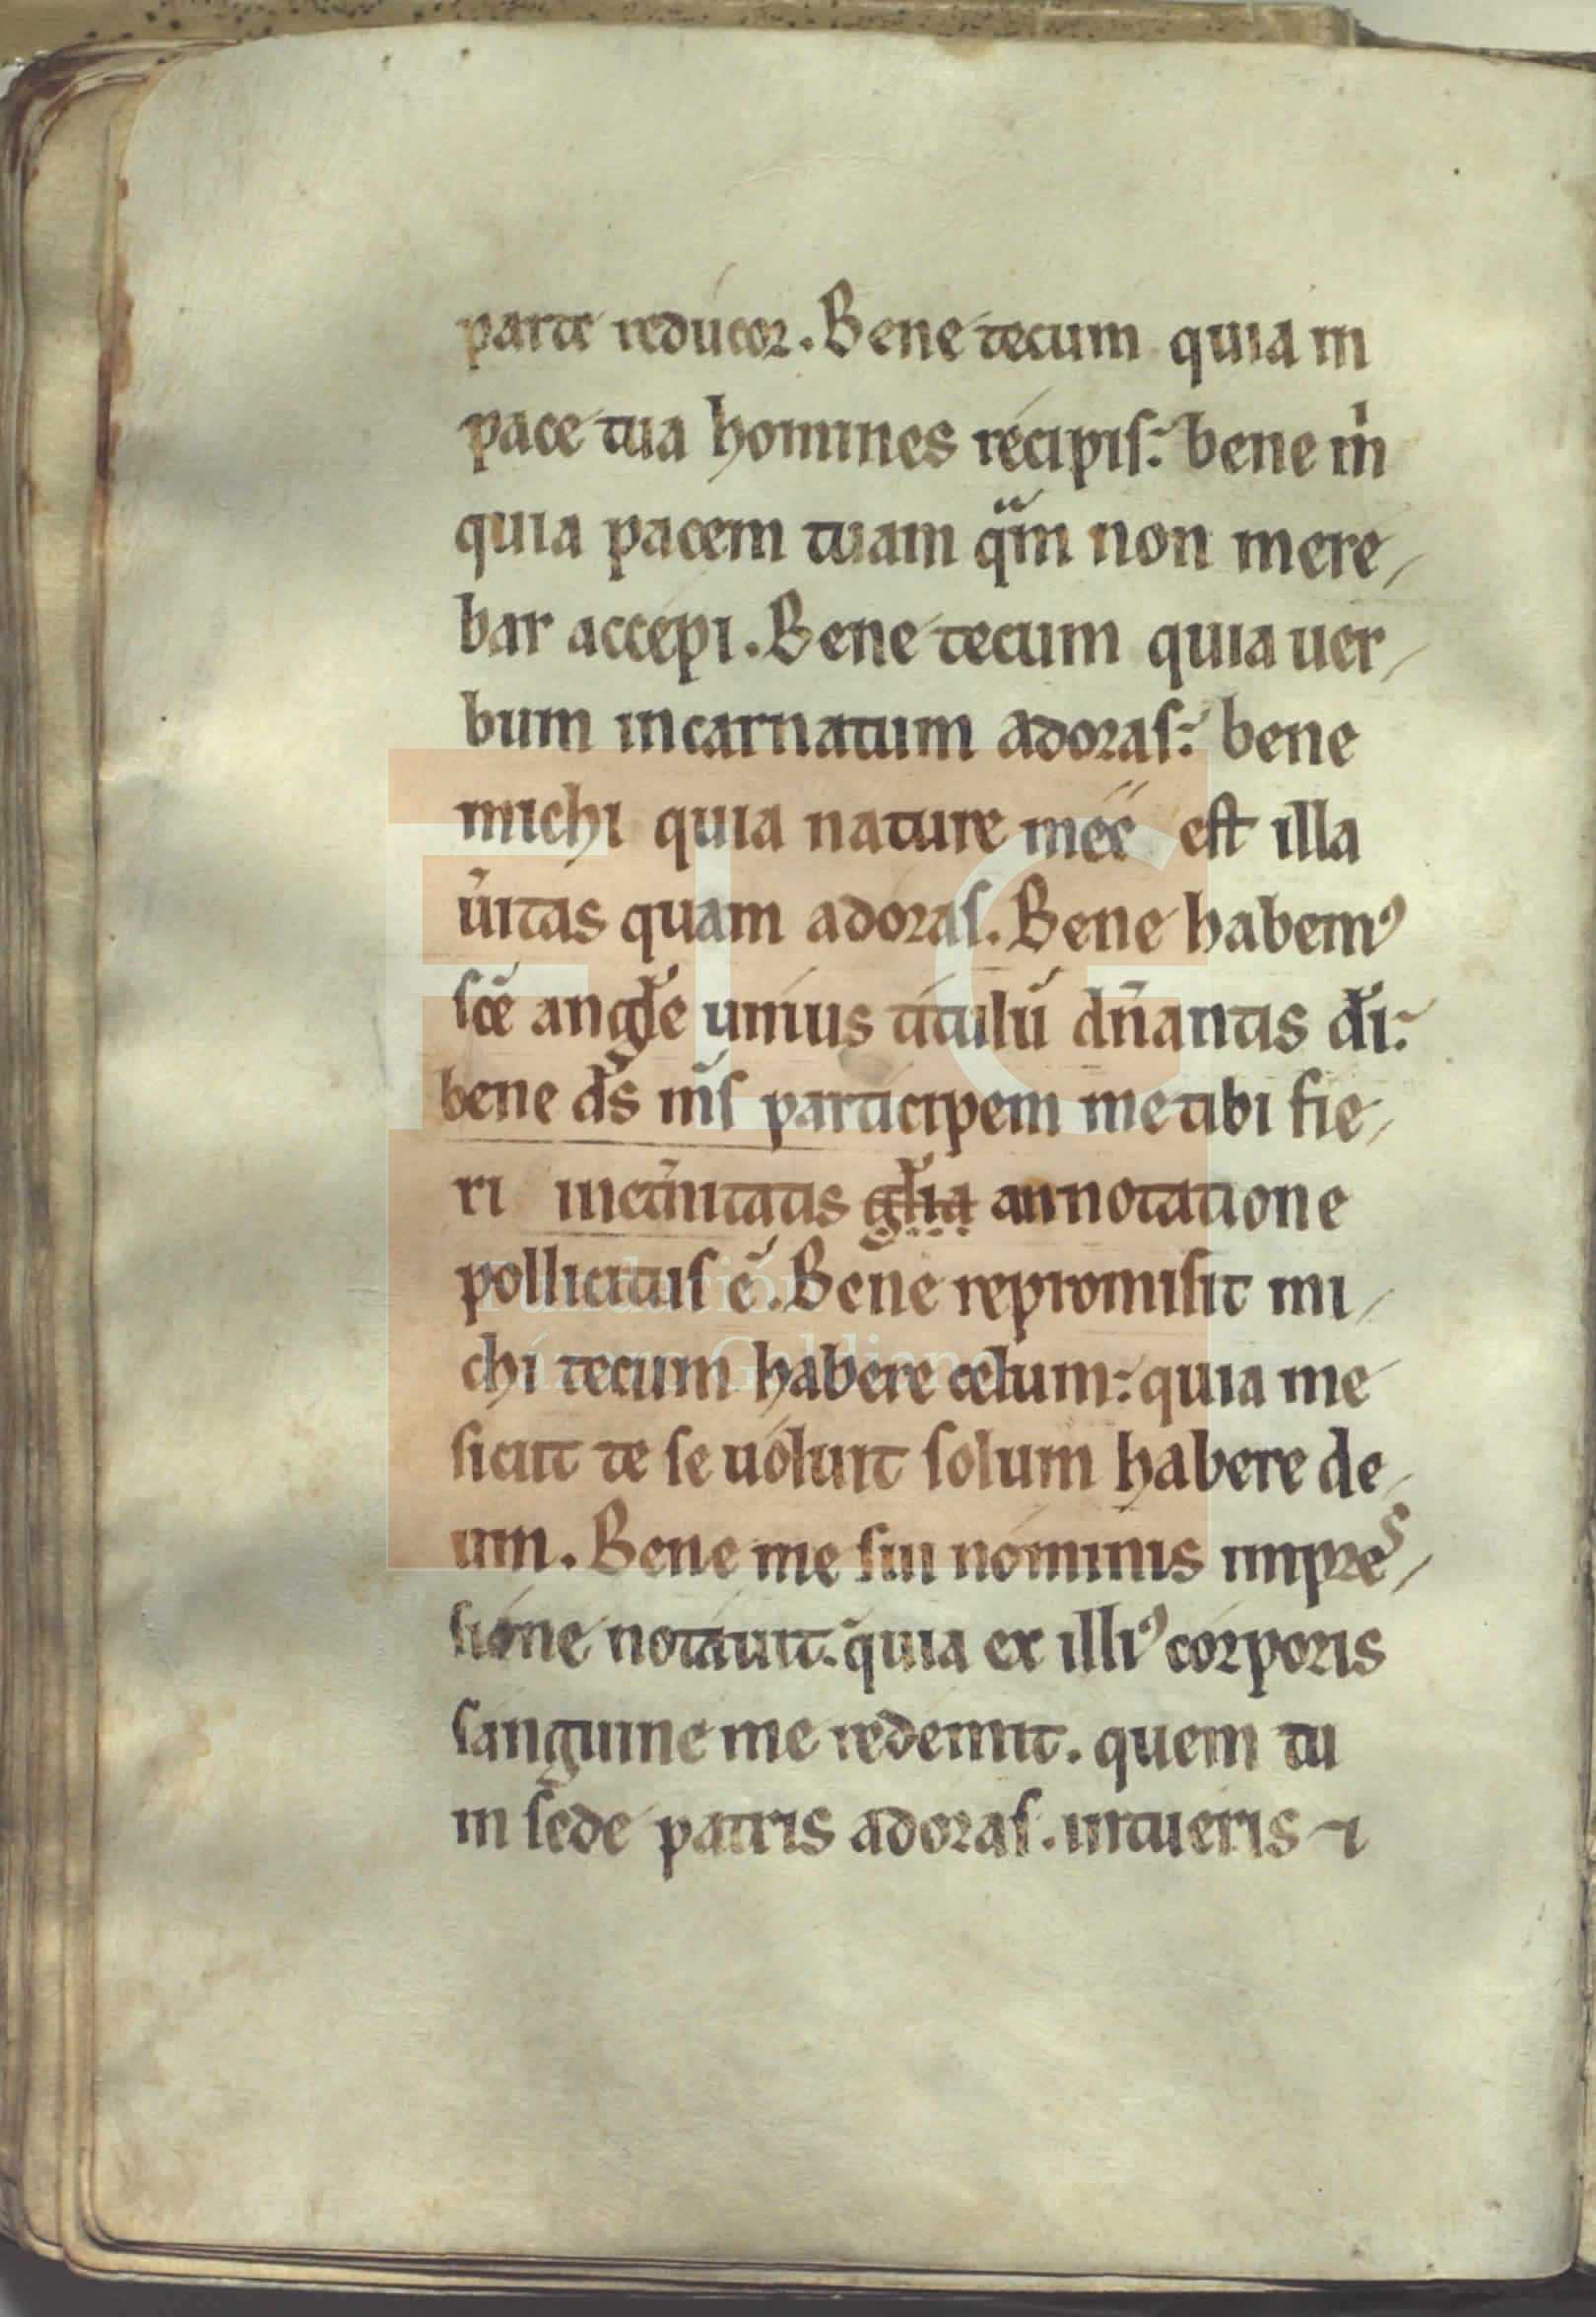 parte reducor. Bene tecum quia in
pace tua homines recipis: bene m̍
quia pacem tuam q̄m non mere-
bar accepi. Bene tecum quia uer-
bum incarnatum adoras: bene
michi quia nature meé est illa
ūitas quam adoras. Bene habemꝰ
sc̄e angl̄e unius titulū dn̄antis dī:
bene ds̄ nr̄s participem me tibi fie-
ri annotatione
pollicitus ē. Bene repromisit mi-
chi tecum habere celum: quia me
sicut te se uoluit solum habere de-
um. Bene me sui nominis impres-
sione notauit. quia ex illiꝰ corporis
sanguine me redemit. quem tu
in sede patris adoras. uirtueris ⁊
FLG